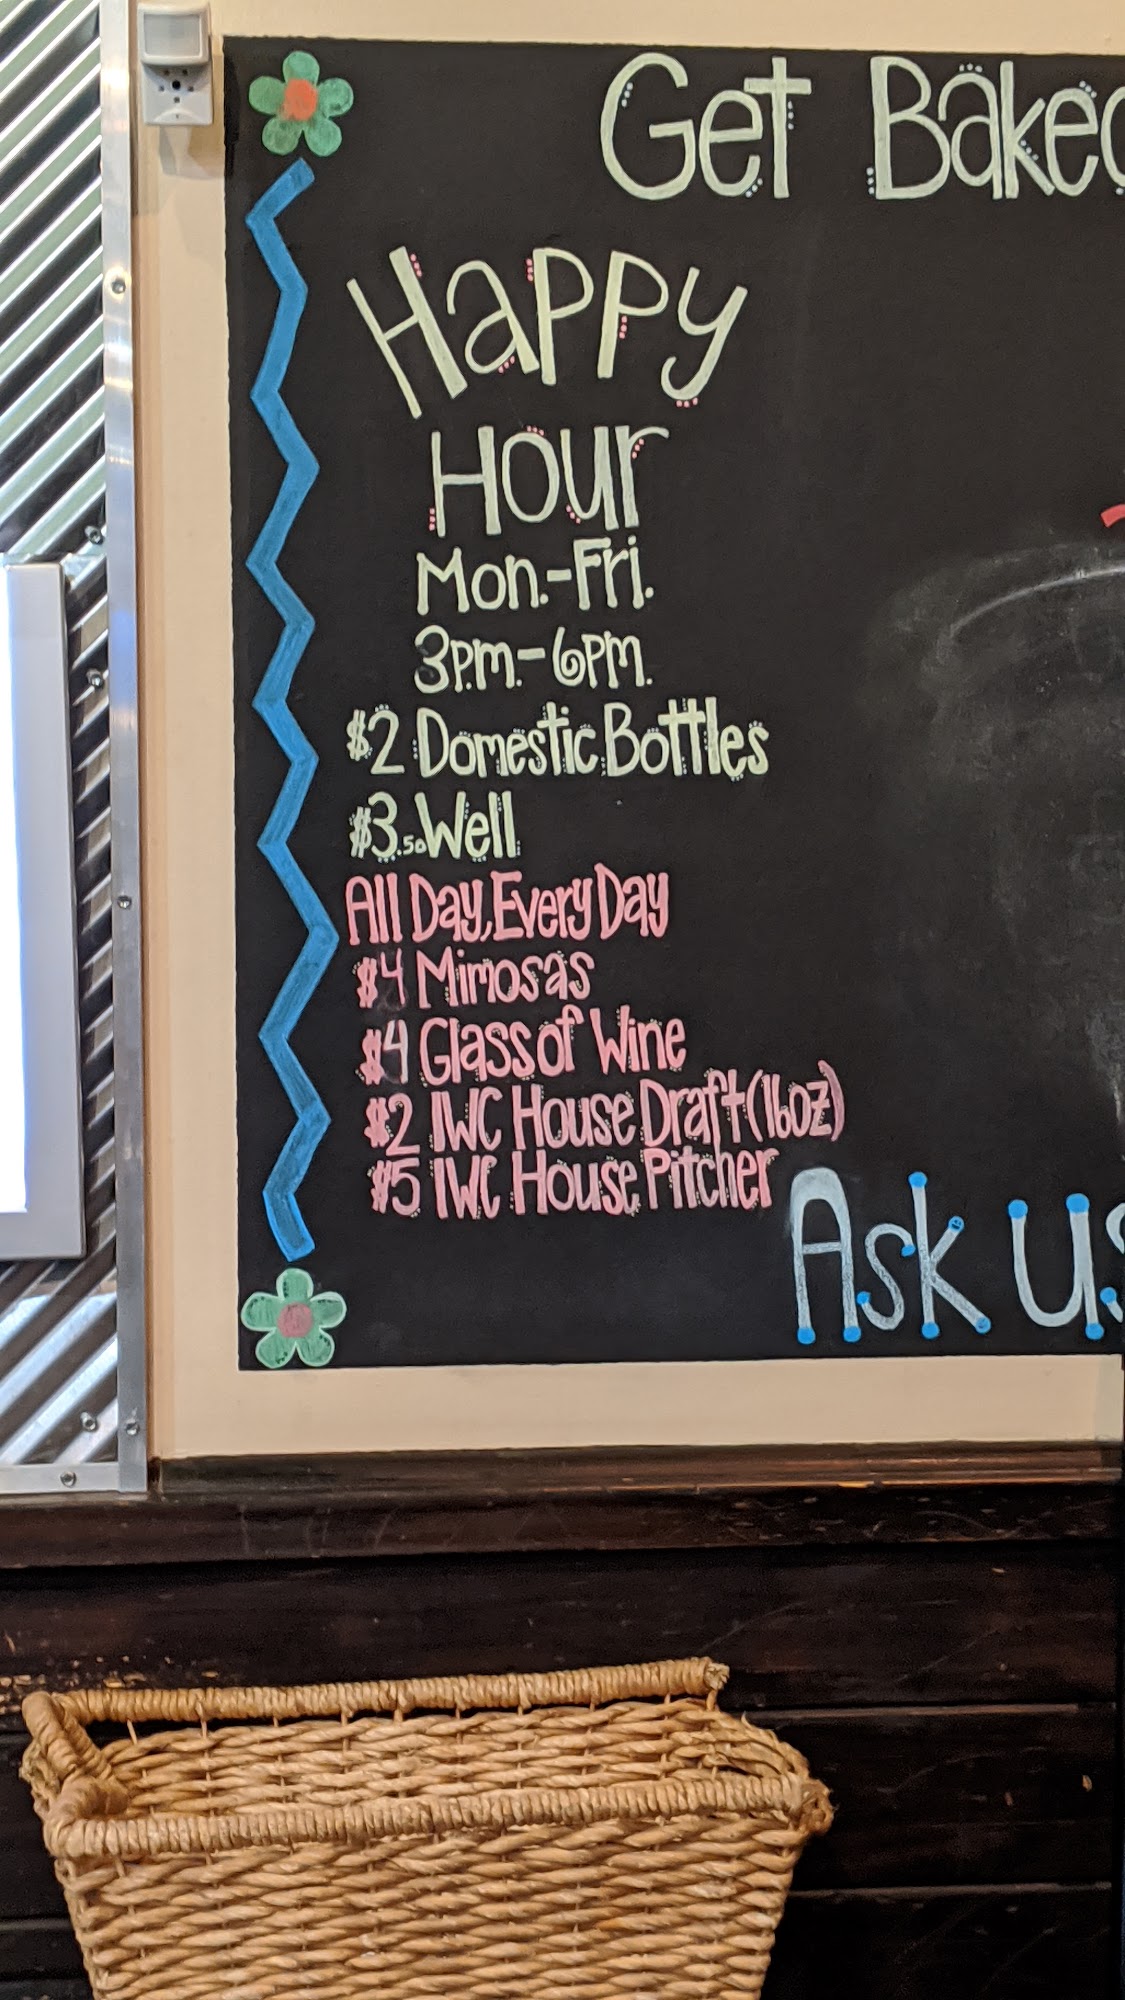 Get Baked
Happy
Hour
Mon.-Fri.
3p.m.-6pm.
$2 Domestic Bottles
$3.50 Well
All Day, Every Day
$4 Mimosas
$4 Glass of Wine
$2 IWC House Draft (16oz)
$5 IWC House Pitcher
Ask us